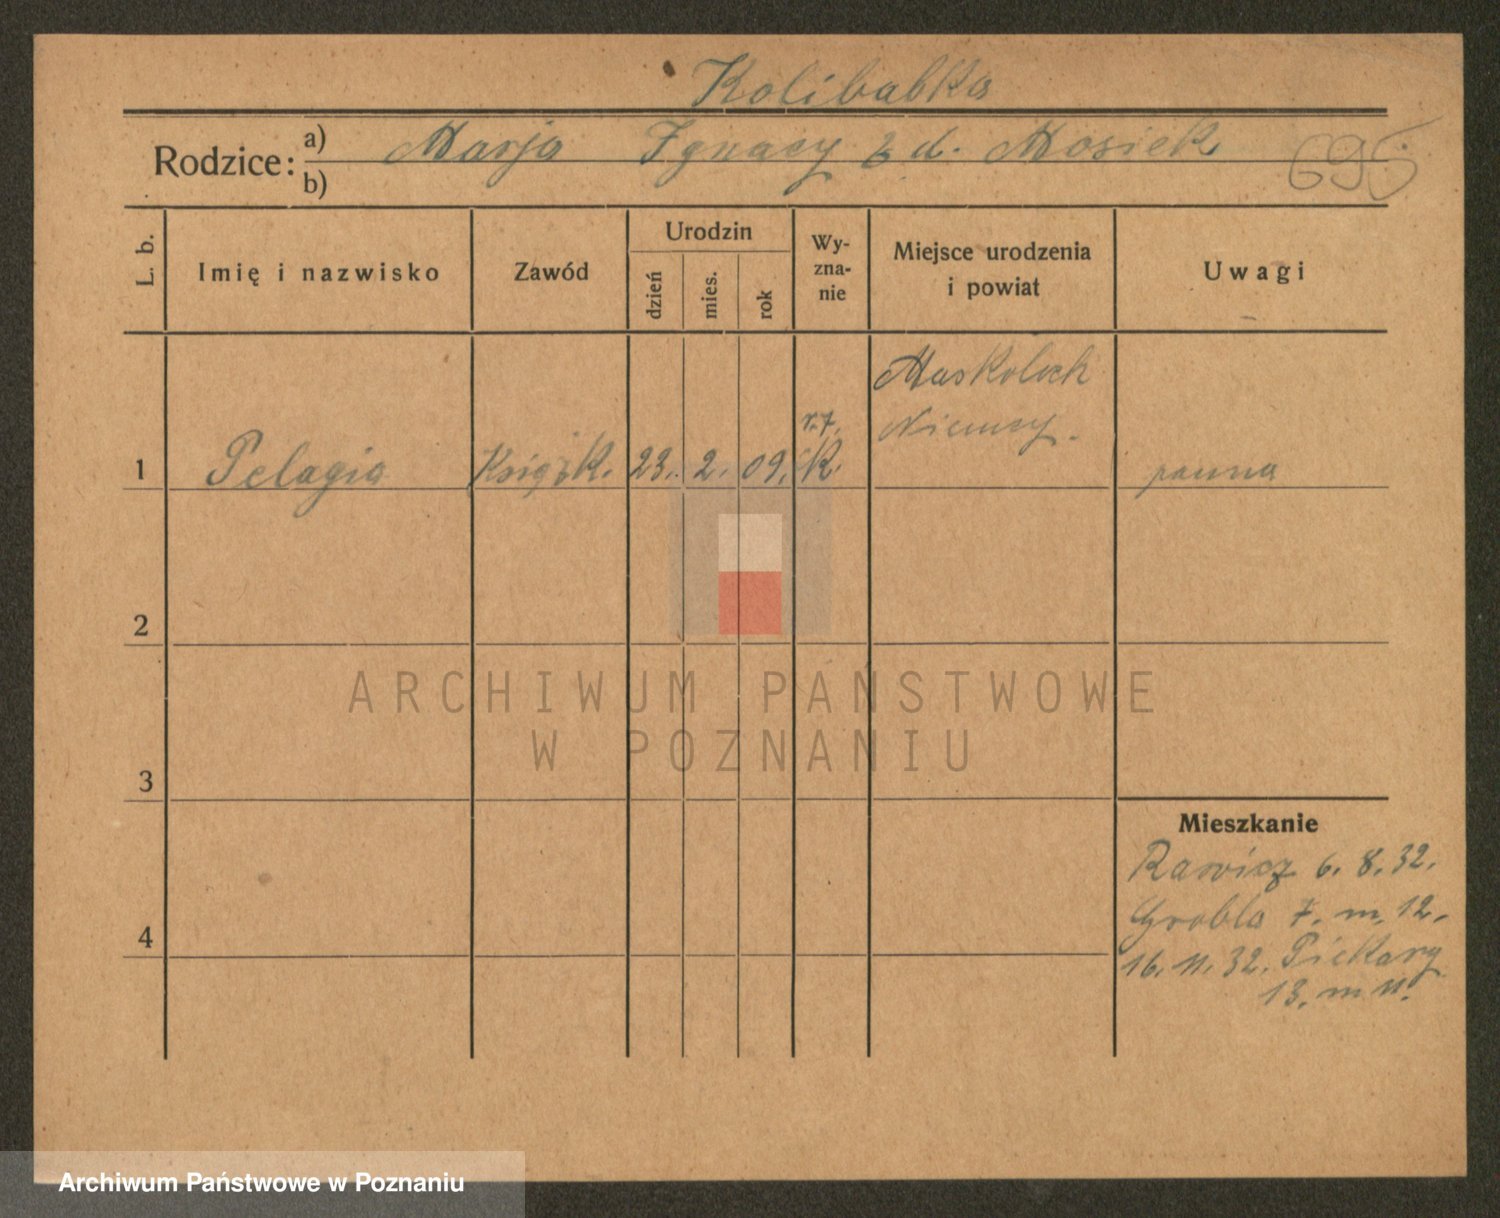 Kolibabka
Rodzice: a) Marja Ignacy z d. Mosiek
b)
695
L. b.
Imię i nazwisko
Zawód
Urodzin
dzień
mies.
rok
Wy-
zna-
nie
Miejsce urodzenia
i powiat
Uwagi
1 Pelagia Książk. 23. 2. 09. r. k. Niemcy. panna
2
3
4
Mieszkanie
Rawicz 6. 8. 32.
Grobla 7. m. 12.
16. 11. 32. Piekary
13. m 11.
ARCHIWUM PAŃSTWOWE
W POZNANIU
Archiwum Państwowe w Poznaniu